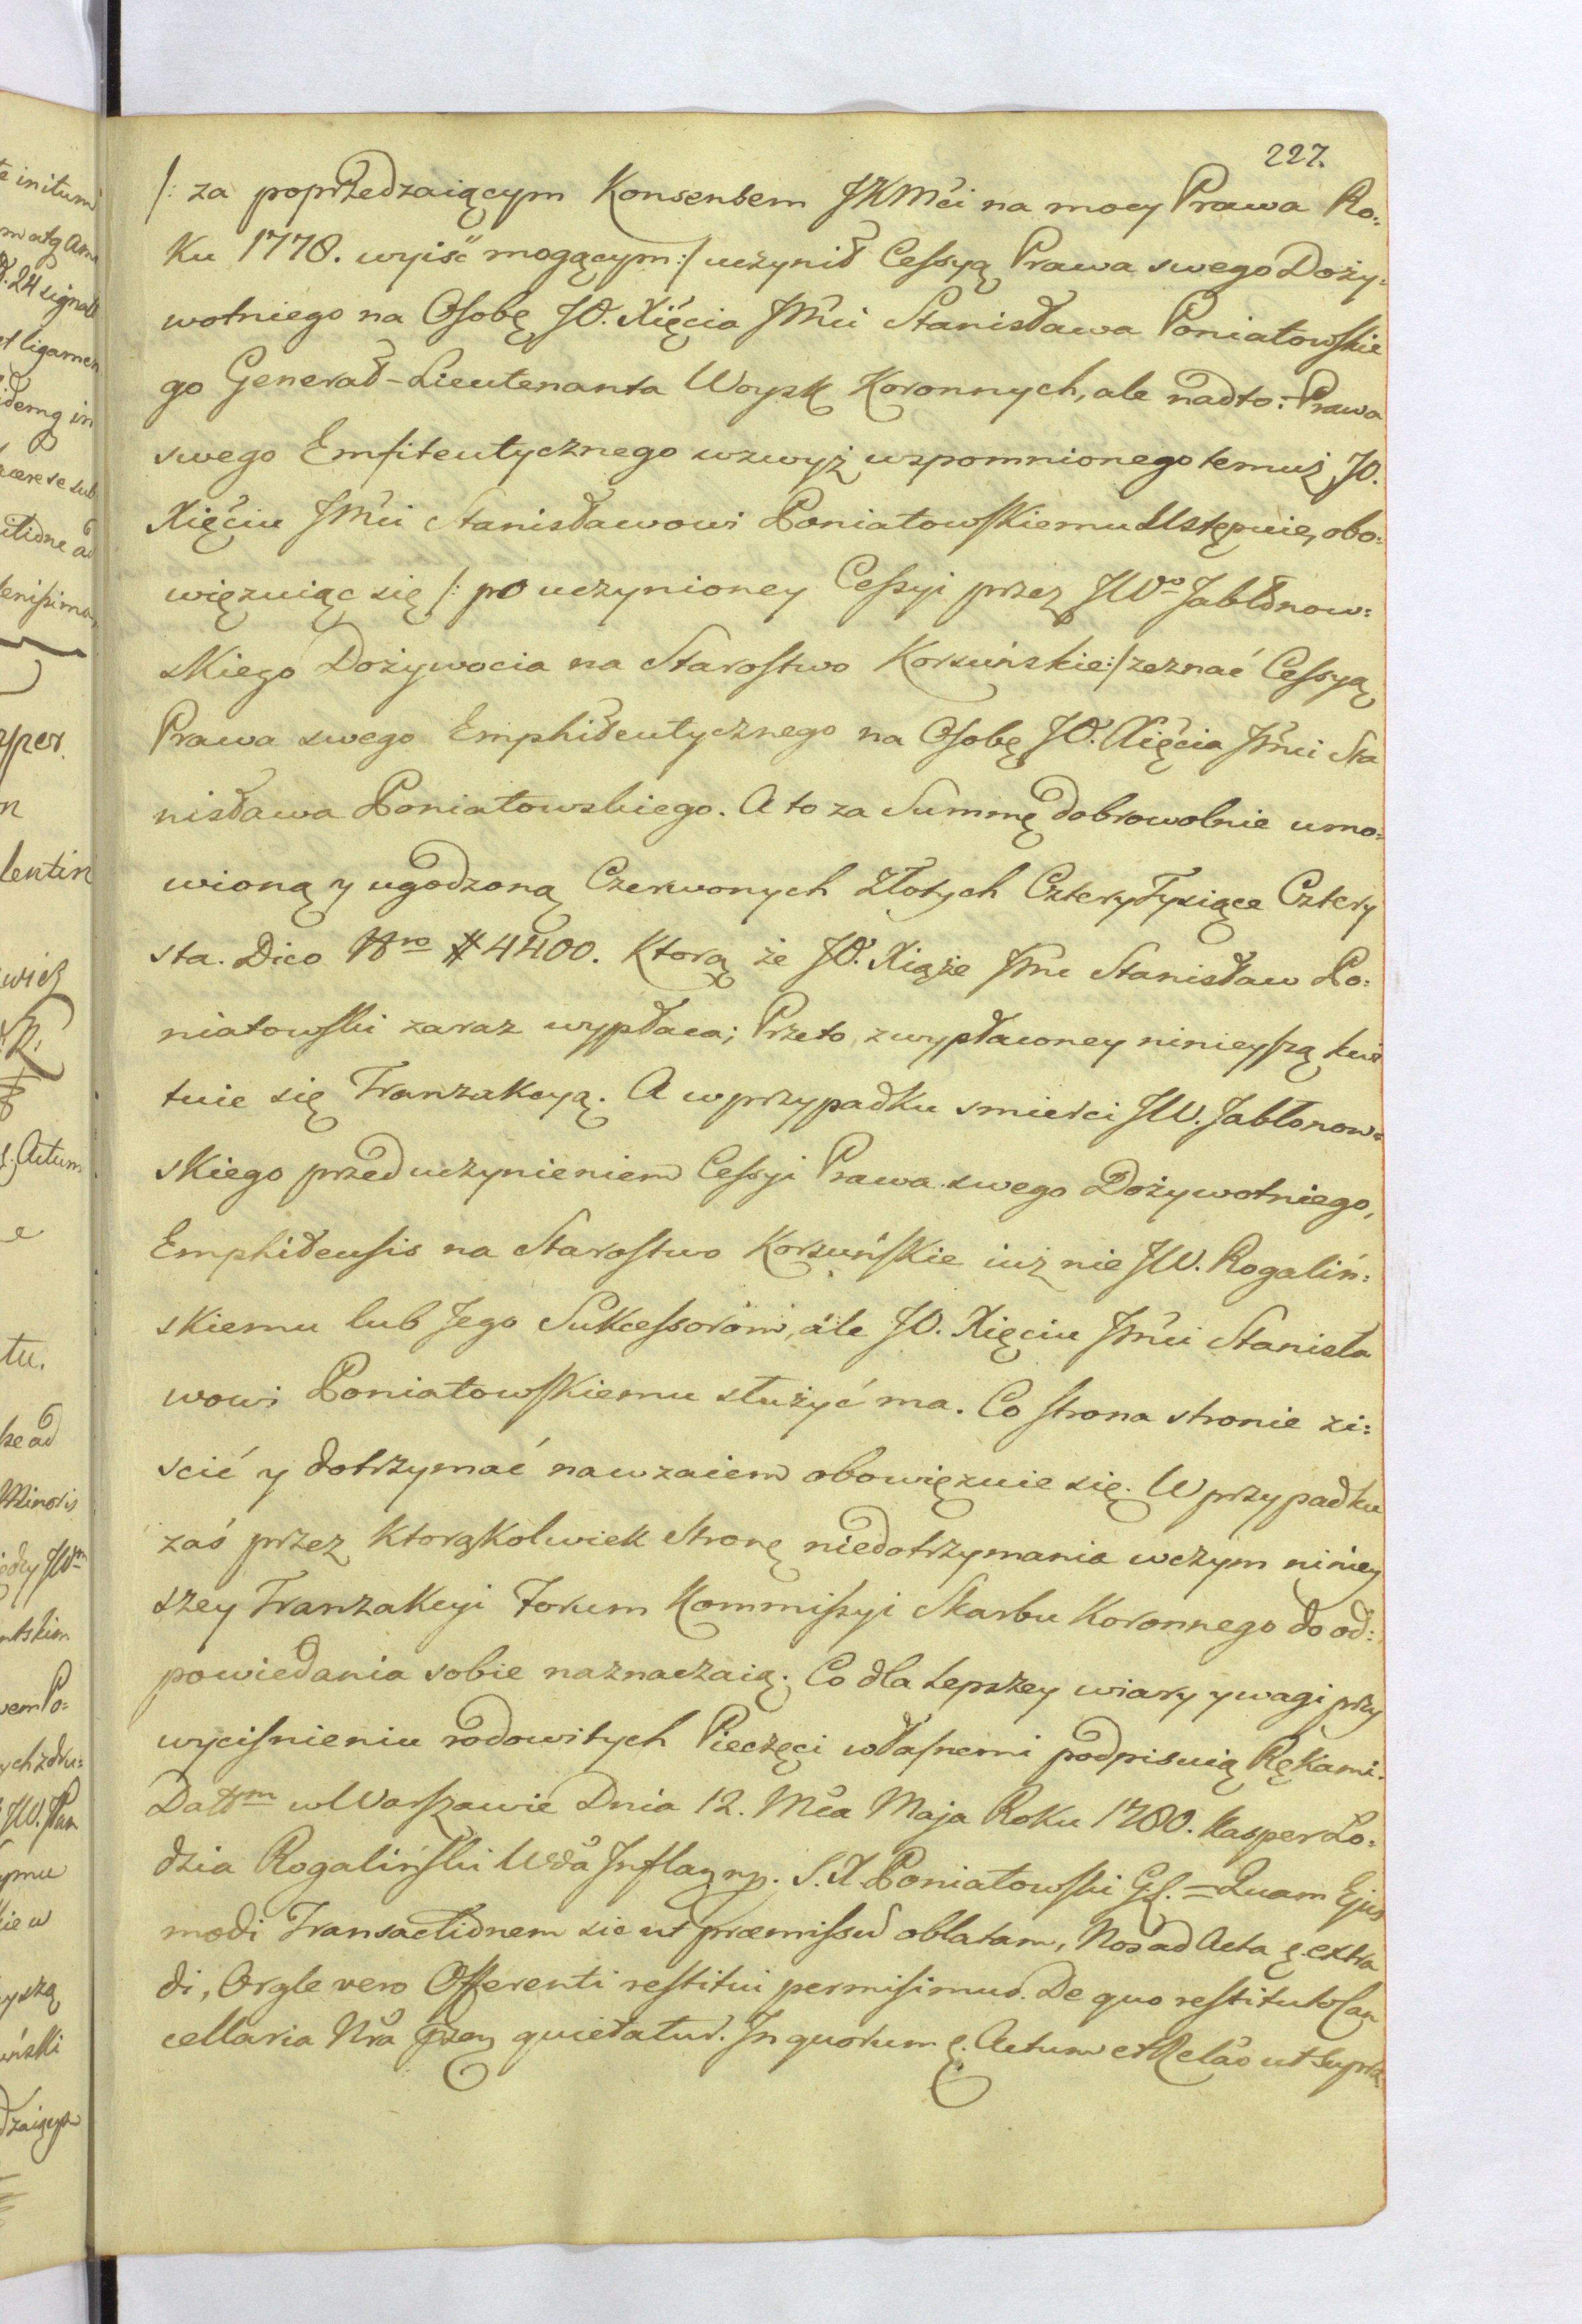 227.
/: za poprzedzaiącym Konsensem JKMći na mocy Prawa Ro:
Ku 1778. wyiść mogącym:/ uczynił Cessyą Prawa swego Doży:
wotniego na Osobę JO. Xięcia Jmći Stanisława Poniatowskie
go Generał-Lieutenanta Woysk Koronnych, ale nadto: Prawa
swego Emfiteutycznego wzwyż wspomnionego temuż JO.
Xięciu Jmći Stanisławowi Poniatowskiemu Ustępuie, obo:
więzuiąc się /: po uczynioney Cessyi przez JWo Jabłonow:
skiego Dożywocia na Starostwo Korsuńskie:/ zeznać Cessyą
Prawa swego Emphiteutycznego na Osobę JO. Xięcia Jmći Sta
nisława Poniatowskiego. A to za Summę dobrowolnie umo:
wioną y ugodzoną Czerwonych Złotych Cztery Tysiące Cztery
sta. Dico Nro # 4400. Ktorą że JO. Xiąże Jmć Stanisław Po:
niatowski zaraz wypłaca; Przeto z wypłaconey ninieyszą kwi
tuie się Tranzakcyą. A w przypadku smierci JW. Jabłonow:
skiego przed uczynieniem Cessyi Prawa swego Dożywotniego,
Emphiteusis na Starostwo Korsuńskie iuż nie JW. Rogaliń:
skiemu lub Jego Sukcessorom, ale JO. Xięciu Jmći Stanisła
wowi Poniatowskiemu służyć ma. Co strona stronie zi:
scić y dotrzymać nawzaiem obowięzuie się. W przypadku
zaś przez Ktorąkolwiek stronę niedotrzymania wczym niniey
szey Tranzakcyi Forum Kommissyi Skarbu Koronnego do od:
powiedania sobie naznaczaią. Co dla Lepszey wiary y wagi przy
wyciśnieniu rodowitych Pieczęci własnemi podpisuią Rękami.
Dattm w Warszawie Dnia 12. Mca Maja Roku 1780. Kasper Ło:
dzia Rogaliński Wda Inflan mp. S. X. Poniatowski GL. = Quam Ejus
modi Transactionem sic ut præmissum oblatam, Nos ad Acta ę. extra
di, Orgle vero Offerenti restitui permisimus. De quo restituto Can
cellaria Nra pzez quietatur. In quorum ę. Actum et Relao ut supra